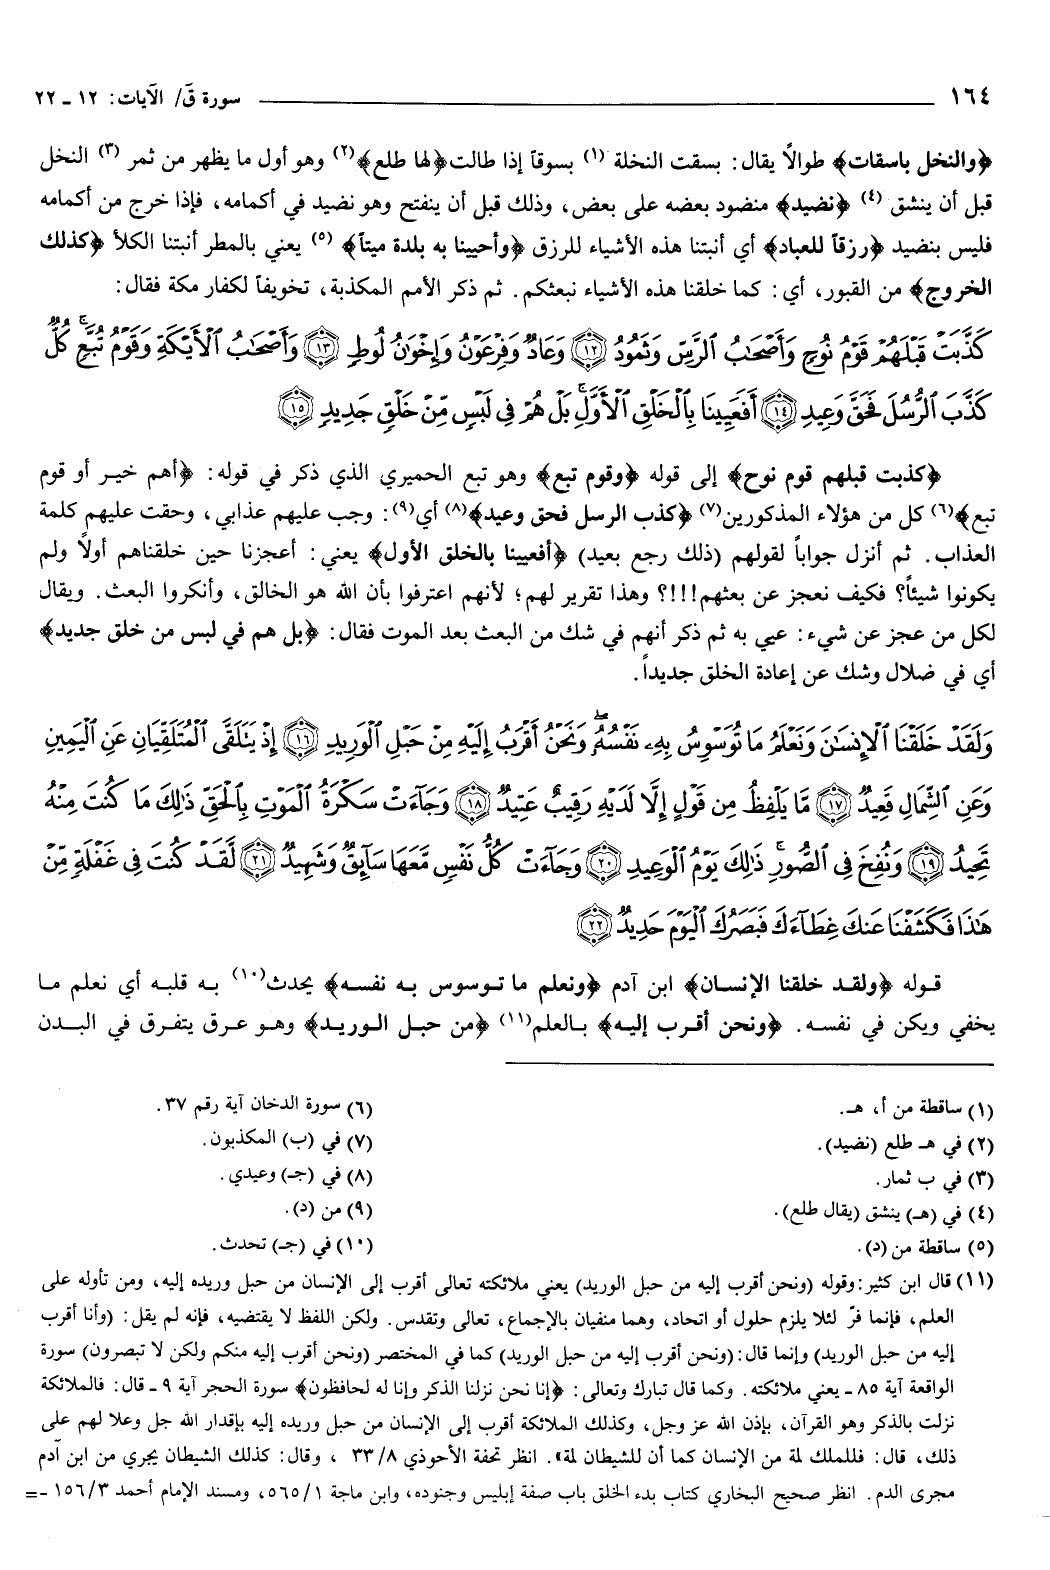 ١٦٤ سورة قۤ/ الآيات: ١٢ ـ ٢٢
﴿والنخل باسقات﴾ طوالاً يقال: بسقت النخلة (١) بسوقاً إذا طالت﴿لها طلع﴾(٢) وهو أول ما يظهر من ثمر (٣) النخل
قبل أن ينشق (٤) ﴿نضيد﴾ منضود بعضه على بعض، وذلك قبل أن ينفتح وهو نضيد في أكمامه، فإذا خرج من أكمامه
فليس بنضيد ﴿رزقاً للعباد﴾ أي أنبتنا هذه الأشياء للرزق ﴿وأحيينا به بلدة ميتاً﴾ (٥) يعني بالمطر أنبتنا الكلأ ﴿كذلك
الخروج﴾ من القبور، أي: كما خلقنا هذه الأشياء نبعثكم. ثم ذكر الأمم المكذبة، تخويفاً لكفار مكة فقال:
كَذَّبَتْ قَبْلَهُمْ قَوْمُ نُوحٍ وَأَصْحَٰبُ ٱلرَّسِّ وَثَمُودُ ١٢ وَعَادٌ وَفِرْعَوْنُ وَإِخْوَٰنُ لُوطٍ ١٣ وَأَصْحَٰبُ ٱلْأَيْكَةِ وَقَوْمُ تُبَّعٍ ۚ كُلٌّ
كَذَّبَ ٱلرُّسُلَ فَحَقَّ وَعِيدِ ١٤ أَفَعَيِينَا بِٱلْخَلْقِ ٱلْأَوَّلِ ۚ بَلْ هُمْ فِى لَبْسٍ مِّنْ خَلْقٍ جَدِيدٍ ١٥
﴿كذبت قبلهم قوم نوح﴾ إلى قوله ﴿وقوم تبع﴾ وهو تبع الحميري الذي ذكر في قوله: ﴿أهم خير أو قوم
تبع﴾(٦) كل من هؤلاء المذكورين(٧) ﴿كذب الرسل فحق وعيد﴾(٨) أي(٩): وجب عليهم عذابي، وحقت عليهم كلمة
العذاب. ثم أنزل جواباً لقولهم (ذلك رجع بعيد) ﴿أفعيينا بالخلق الأول﴾ يعني: أعجزنا حين خلقناهم أولاً ولم
يكونوا شيئاً؟ فكيف نعجز عن بعثهم!!!؟ وهذا تقرير لهم؛ لأنهم اعترفوا بأن الله هو الخالق، وأنكروا البعث. ويقال
لكل من عجز عن شيء: عيي به ثم ذكر أنهم في شك من البعث بعد الموت فقال: ﴿بل هم في لبس من خلق جديد﴾
أي في ضلال وشك عن إعادة الخلق جديداً.
وَلَقَدْ خَلَقْنَا ٱلْإِنسَٰنَ وَنَعْلَمُ مَا تُوَسْوِسُ بِهِۦ نَفْسُهُۥ ۖ وَنَحْنُ أَقْرَبُ إِلَيْهِ مِنْ حَبْلِ ٱلْوَرِيدِ ١٦ إِذْ يَتَلَقَّى ٱلْمُتَلَقِّيَانِ عَنِ ٱلْيَمِينِ
وَعَنِ ٱلشِّمَالِ قَعِيدٌ ١٧ مَّا يَلْفِظُ مِن قَوْلٍ إِلَّا لَدَيْهِ رَقِيبٌ عَتِيدٌ ١٨ وَجَآءَتْ سَكْرَةُ ٱلْمَوْتِ بِٱلْحَقِّ ذَٰلِكَ مَا كُنتَ مِنْهُ
تَحِيدُ ١٩ وَنُفِخَ فِى ٱلصُّورِ ۚ ذَٰلِكَ يَوْمُ ٱلْوَعِيدِ ٢٠ وَجَآءَتْ كُلُّ نَفْسٍ مَّعَهَا سَآئِقٌ وَشَهِيدٌ ٢١ لَّقَدْ كُنتَ فِى غَفْلَةٍ مِّنْ
هَٰذَا فَكَشَفْنَا عَنكَ غِطَآءَكَ فَبَصَرُكَ ٱلْيَوْمَ حَدِيدٌ ٢٢
قوله ﴿ولقد خلقنا الإنسان﴾ ابن آدم ﴿ونعلم ما توسوس به نفسه﴾ يحدث(١٠) به قلبه أي نعلم ما
يخفي ويكن في نفسه. ﴿ونحن أقرب إليه﴾ بالعلم(١١) ﴿من حبل الوريد﴾ وهو عرق يتفرق في البدن
(١) ساقطة من أ، هـ.
(٢) في هـ طلع (نضيد).
(٣) في ب ثمار.
(٤) في (هـ) ينشق (يقال طلع).
(٥) ساقطة من (د).
(٦) سورة الدخان آية رقم ٣٧.
(٧) في (ب) المكذبون.
(٨) في (جـ) وعيدي.
(٩) من (د).
(١٠) في (جـ) تحدث.
(١١) قال ابن كثير: وقوله (ونحن أقرب إليه من حبل الوريد) يعني ملائكته تعالى أقرب إلى الإنسان من حبل وريده إليه، ومن تأوله على
العلم، فإنما فرّ لئلا يلزم حلول أو اتحاد، وهما منفيان بالإجماع، تعالى وتقدس. ولكن اللفظ لا يقتضيه، فإنه لم يقل: (وأنا أقرب
إليه من حبل الوريد) وإنما قال: (ونحن أقرب إليه من حبل الوريد) كما في المختصر (ونحن أقرب إليه منكم ولكن لا تبصرون) سورة
الواقعة آية ٨٥ ـ يعني ملائكته. وكما قال تبارك وتعالى: ﴿إنا نحن نزلنا الذكر وإنا له لحافظون﴾ سورة الحجر آية ٩ ـ قال: فالملائكة
نزلت بالذكر وهو القرآن، بإذن الله عز وجل، وكذلك الملائكة أقرب إلى الإنسان من حبل وريده إليه بإقدار الله جل وعلا لهم على
ذلك، قال: فللملك لمة من الإنسان كما أن للشيطان لمة». انظر تحفة الأحوذي ٣٣/٨ ، وقال: كذلك الشيطان يجري من ابن آدم
مجرى الدم. انظر صحيح البخاري كتاب بدء الخلق باب صفة إبليس وجنوده، وابن ماجة ٥٦٥/١، ومسند الإمام أحمد ١٥٦/٣ -=